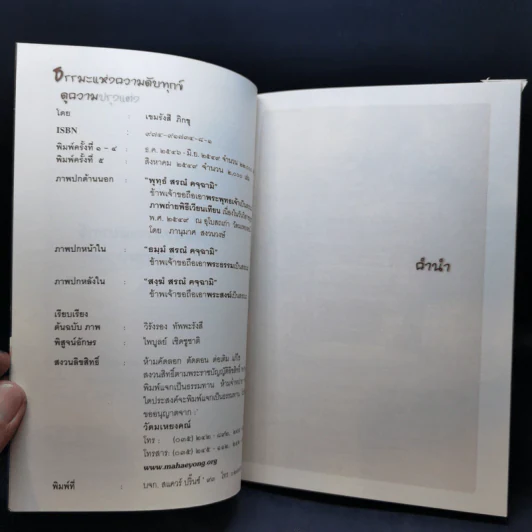 ธรรมะแห่งความดับทุกข์
ดูความปรุงแต่ง
โดย : เขมรังสี ภิกขุ
ISBN :
พิมพ์ครั้งที่ ๑ - ๔ : ธ.ค. ๒๕๔๖ - มิ.ย. ๒๕๔๙ จำนวน
พิมพ์ครั้งที่ ๕ : สิงหาคม ๒๕๔๙ จำนวน ๒,๐๐๐ เล่ม
ภาพปกด้านนอก : "พุทฺธํ สรณํ คจฺฉามิ"
ข้าพเจ้าขอถือเอาพระพุทธเจ้าเป็น
ภาพถ่ายพิธีเวียนเทียน เนื่องในวัน
พ.ศ. ๒๕๔๙ ณ อุโบสถเก่า
โดย : ภานุมาศ สงวนวงษ์
ภาพปกหน้าใน : "ธมฺมํ สรณํ คจฺฉามิ"
ข้าพเจ้าขอถือเอาพระธรรมเป็น
ภาพปกหลังใน : "สงฺฆํ สรณํ คจฺฉามิ"
ข้าพเจ้าขอถือเอาพระสงฆ์เป็น
เรียบเรียง
ต้นฉบับ ภาพ : วิรังรอง ทัพพะรังสี
พิสูจน์อักษร : ไพบูลย์ เชิดชูชาติ
สงวนลิขสิทธิ์ : ห้ามคัดลอก ตัดตอน ต่อเติม แก้ไข
สงวนสิทธิ์ตามพระราชบัญญัติลิขสิทธิ์
พิมพ์แจกเป็นธรรมทาน
ใดประสงค์จะพิมพ์แจกเป็นธรรมทาน
ขออนุญาตจาก :
วัดมเหยงคณ์
โทร : (๐๓๕)
โทรสาร: (๐๓๕)
www.mahaeyong.org
พิมพ์ที่ : บจก. สแควร์ ปริ๊นซ์ โทร
คำนำ